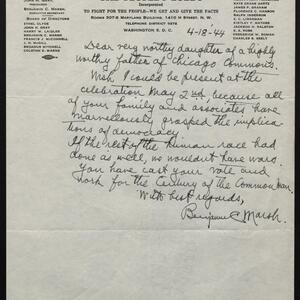 Incorporated
TO FIGHT FOR THE PEOPLE—WE GET AND GIVE THE FACTS
ROOMS 207-8 MARYLAND BUILDING, 1410 H STREET, N. W.
TELEPHONE DISTRICT
WASHINGTON 5, D. C.
BOARD OF DIRECTORS
ETHEL CLYDE
JOHN H. GRAY
HARRY W. LAIDLER
BENJAMIN C. MARSH
FRANCIS J. MCCONNELL
J. H. MCGILL
BROADUS MITCHELL
GELSTON M. WINE
4-18-'44
Dear very worthy daughter of a highly
worthy father of Chicago Commons.
Wish I could be present at the
celebration May 2nd, because all
of your family and associates have
marvellously grasped the implica
tions of democracy.
If the rest of the human race had
done as well, we wouldn't have wars.
You have cast your vote and
work for the Century of the Common Man.
With best regards,
Benjamin C Marsh.